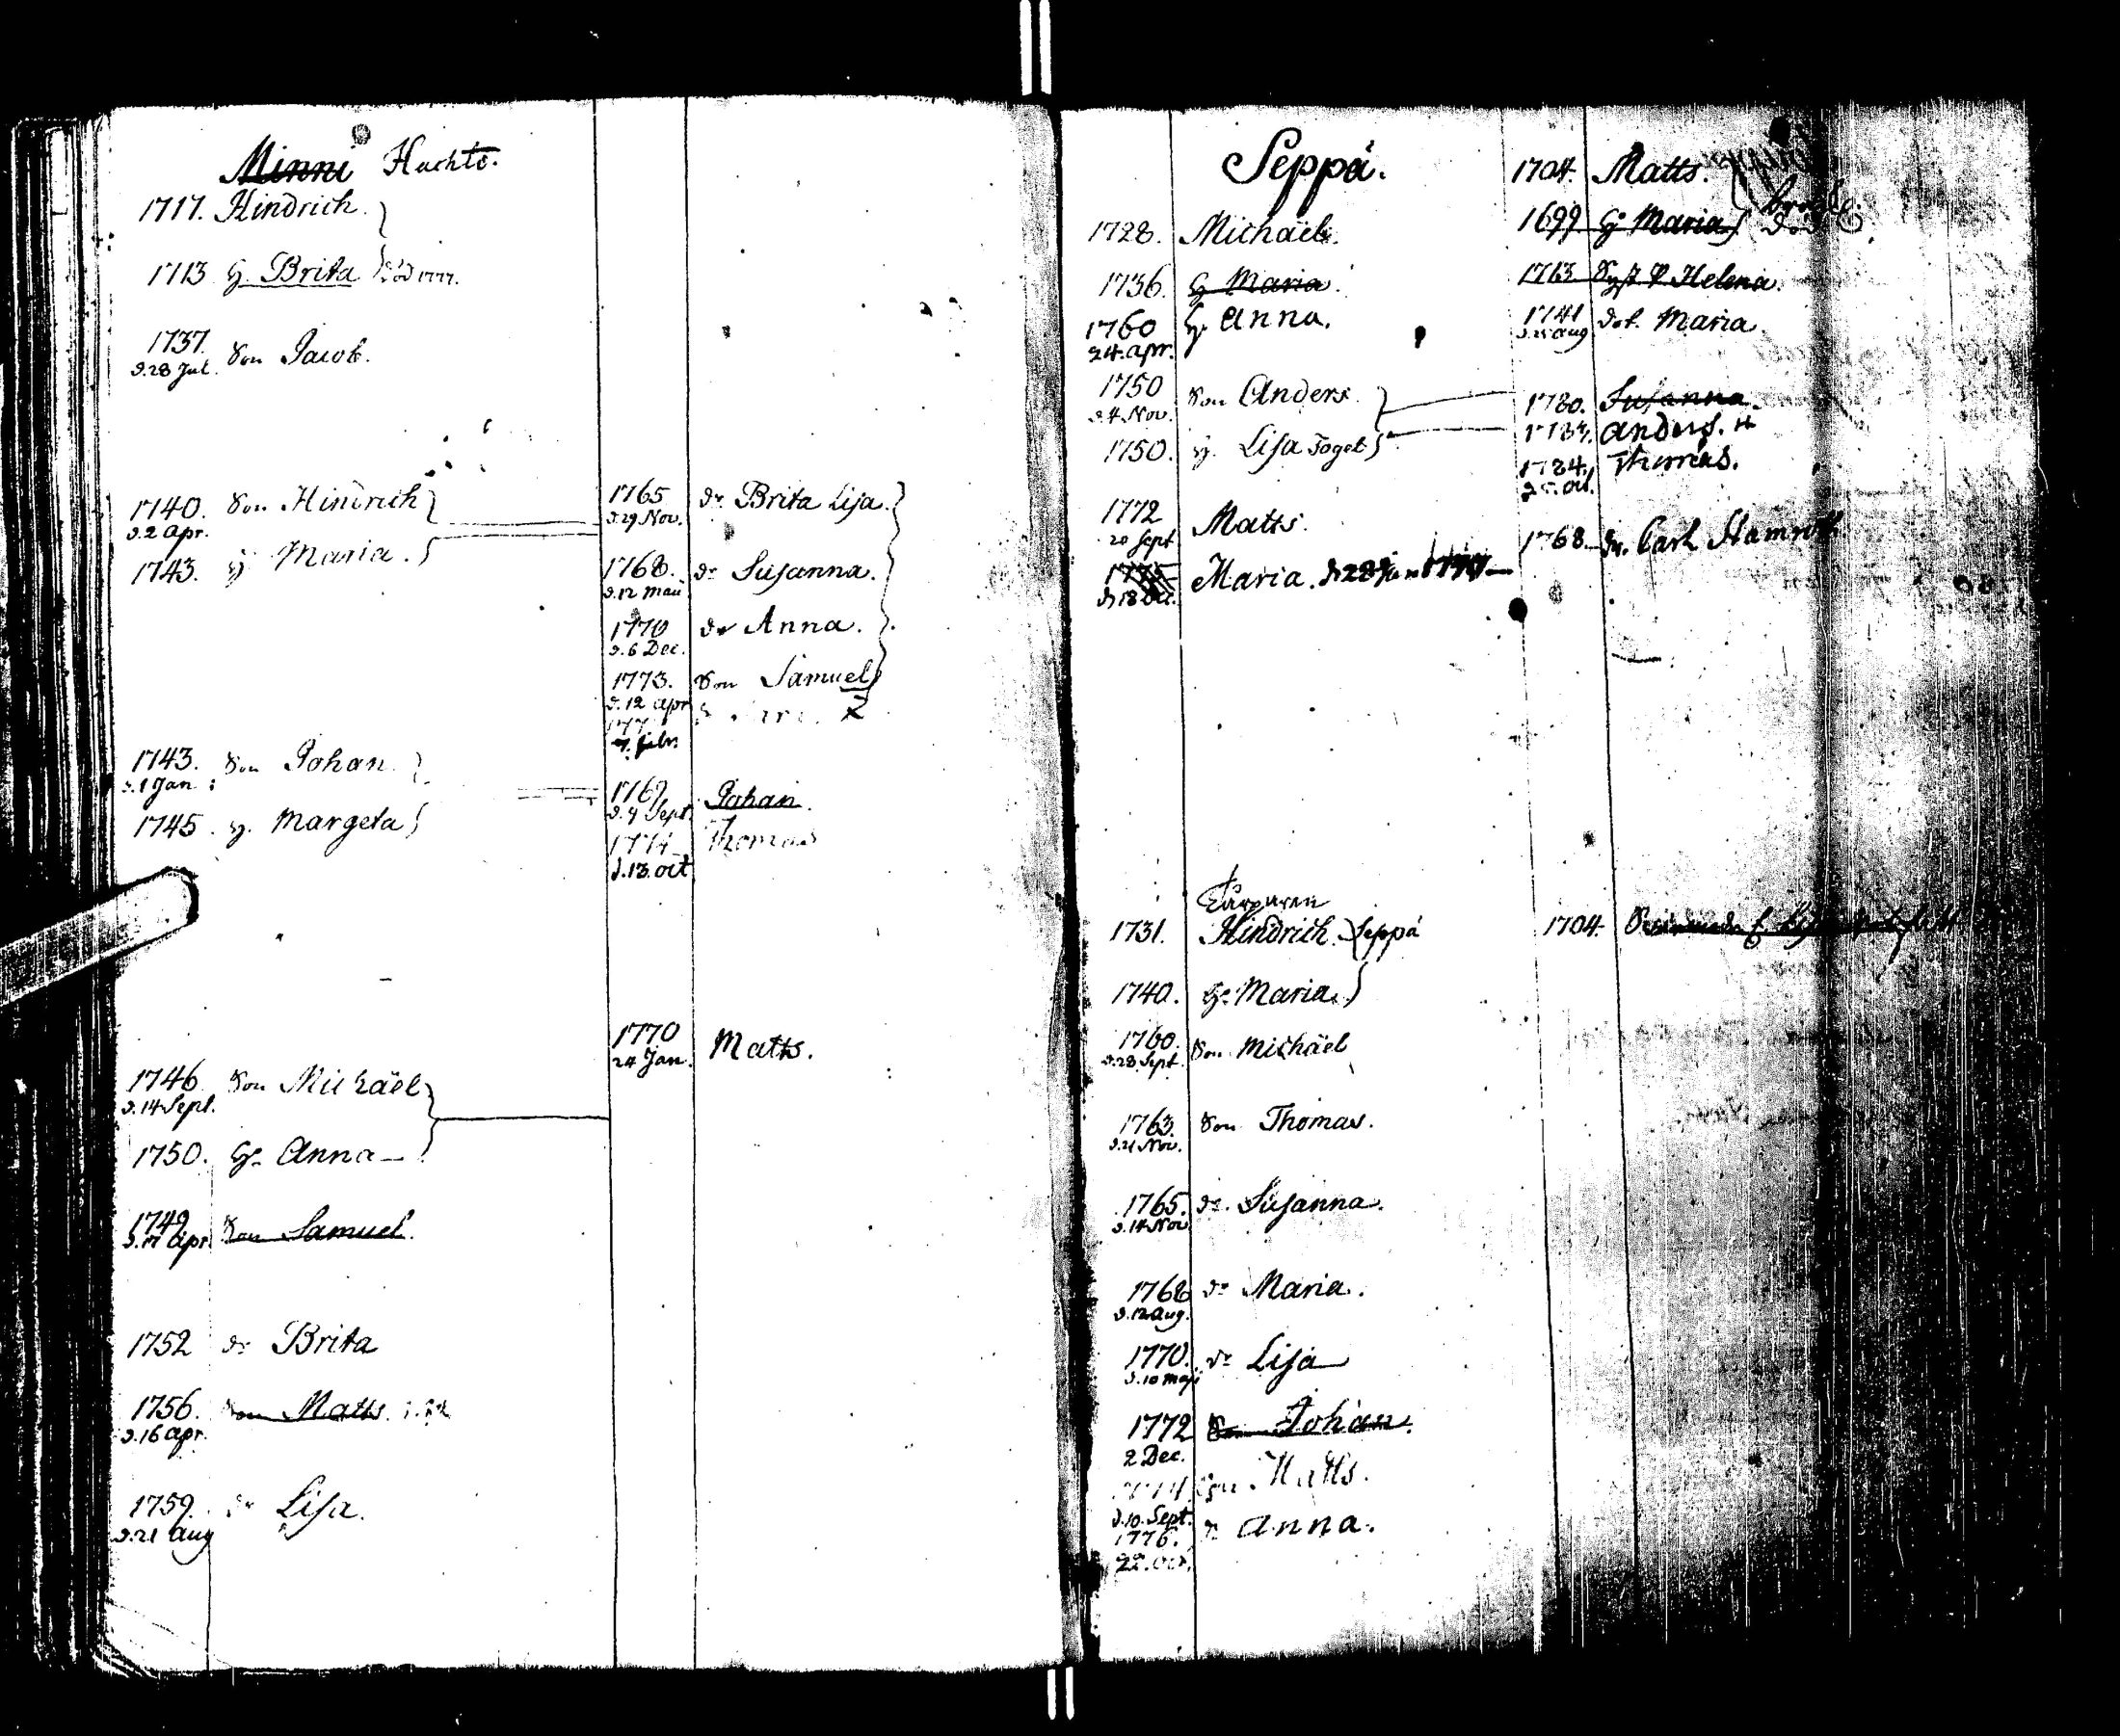 Minni Huchti.
1717. Hindrich
1713 H. Brita död 1777.
1737. Son Jacob.
d. 28 Jul.
1740. Son Hindrich
d. 2 Apr.
1743. H. Maria.
1743. Son Johan
d. 1 Jan
1745. H. Margeta
1746 Son Michäel
d. 14 Sept.
1750. H. Anna
1749 Son Samuel.
Apr
1752 dr Brita
1756. Son Matts.
d. 16 apr.
1759. dr Lisa.
d. 21 Aug
1765 dr Brita Lisa.
d. 29 Nov.
1768. dr Susanna.
d. 12 Maii
1770 dr Anna.
d. 6 Dec.
1773. Son Samuel
d. 12 apr
Johan.
Sept.
Thomas
d. 13. oct
1770 Matts.
24 Jan.
Seppä.
1728. Michaël.
1736. H Maria.
1760 H. Anna.
24. apr.
1750 Son Anders
d. 4 Nov.
1750. H. Lisa
1772 Matts.
20 Sept
Maria.
d. 18
1704. Matts.
1699 H. Maria
1713 Helena.
1741 dot. Maria.
aug
1780. Susanna.
Anders.
1784. Thomas.
oct.
1768. Carl
1731. Hindrich. Seppä
1740. H. Maria.
1760. Son Michäel
d. 28 Sept.
1763. Son Thomas.
d. 21 Nov.
1765. dr. Susanna.
d. 14 Nov
1768 dr Maria.
d. 12 Aug.
1770. dr Lisa
d. 10 Maji
1772 Son Johan.
2 Dec.
Son Matts.
d. 10. Sept.
1776. dr Anna.
1704.